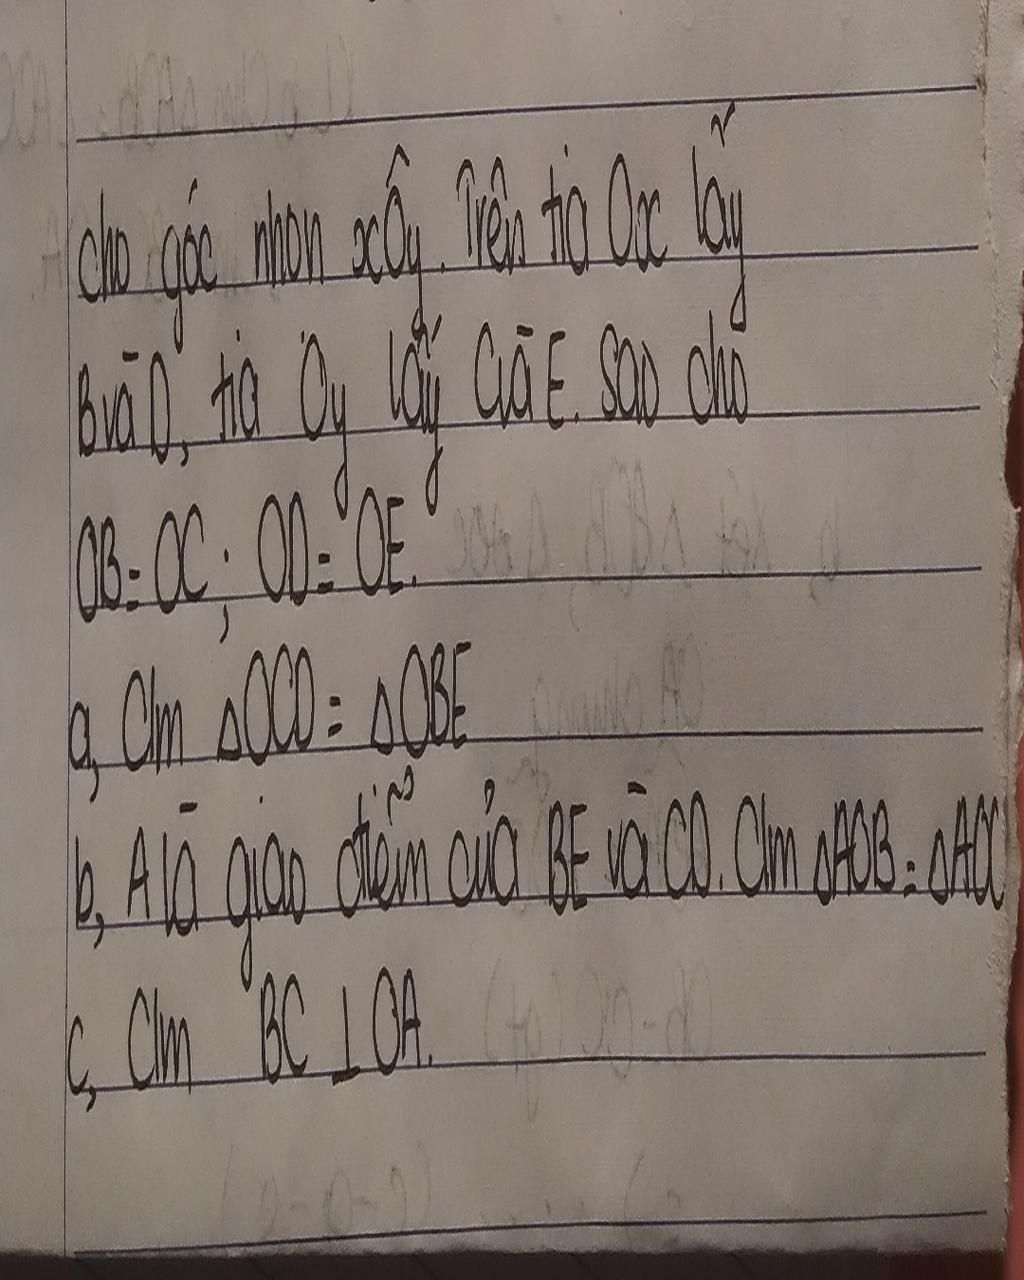 cho góc nhọn xÔy. Trên tia Ox lấy
B và D, tia Oy lấy C và E. Sao cho
OB = OC ; OD = OE.
a, C/m △OCD = △OBE
b, A là giao điểm của BE và CD. C/m △AOB = △AOC
c, C/m BC ⊥ OA.